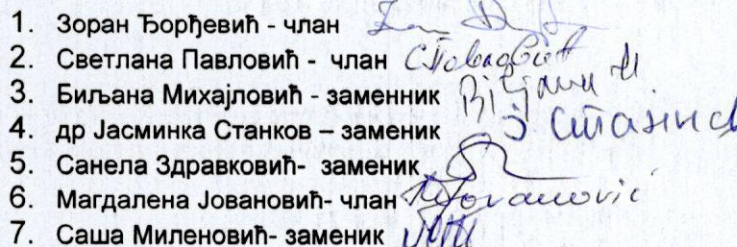 1. Зоран Ђорђевић - члан
2. Светлана Павловић - члан
3. Биљана Михајловић - заменник
4. др Јасминка Станков – заменик
5. Санела Здравковић- заменик
6. Магдалена Јовановић- члан Jovanović
7. Саша Миленовић- заменик